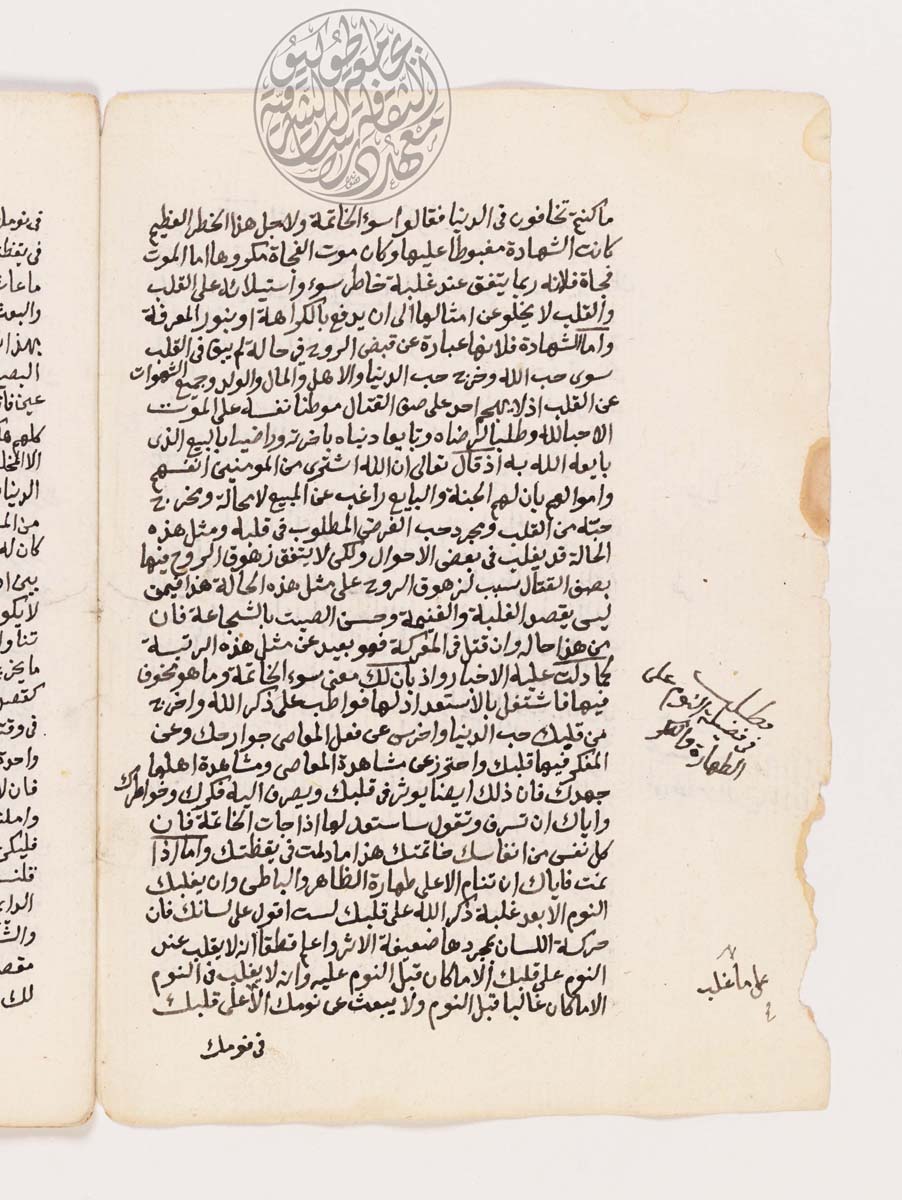 جامعة طوكيو
معهد دراسات الثقافة الشرقية
ما كنتم تخافون في الدنيا فقالوا سوء الخاتمة ولاجل هذا الخطر العظيم
كانت الشهادة مغبوطا عليها وكان موت الفجاة مكروها اما الموت
فجاة فلانه ربما يتفق عند غلبة خاطر سوء واستيلائه على القلب
والقلب لا يخلو عن امثالها الى ان يدفع بالكراهة او بنور المعرفة
واما الشهادة فلانها عبارة عن قبض الروح في حالة لم يبق في القلب
سوى حب الله وخرج حب الدنيا والاهل والمال والولد وجميع الشهوات
عن القلب اذ لا يهجم احد على صف القتال موطنا نفسه على الموت
الا حبا لله وطلبا لرضاه وبايعا دنياه باخرته وراضيا بالبيع الذى
بايعه الله به اذ قال تعالى ان الله اشترى من المومنين انفسهم
واموالهم بان لهم الجنة والبايع راغب عن المبيع لا محالة ومخرج
حبه من القلب ومجرد حب العوض المطلوب في قلبه ومثل هذه
الحالة قد يغلب في بعض الاحوال ولكن لا يتفق زهوق الروح فيها
بصف القتال سبب لزهوق الروح على مثل هذه الحالة هذا فيمن
ليس يقصد الغلبة والغنيمة وحسن الصيت بالشجاعة فان
من هذا حاله وان قتل في المعركة فهو بعيد عن مثل هذه الرتبة
كما دلت عليه الاخبار واذ بان لك معنى سوء الخاتمة وما هو مخوف
فيها فاشتغل بالاستعداد لها فواظب على ذكر الله واخرج
من قلبك حب الدنيا واحرس عن فعل المعاصى جوارحك وعن
الفكر فيها قلبك واحترز عن مشاهدة المعاصى ومشاهدة اهلها
جهدك فان ذلك ايضا يوثر في قلبك ويصرف اليه فكرك وخواطرك
واياك ان تسوف وتقول ساستعد لها اذا جات الخاتمة فان
كل نفس من انفاسك خاتمتك هذا ما دمت في يقظتك واما اذا
نمت فاياك ان تنام الا على طهارة الظاهر والباطن وان يغلبك
النوم الا بعد غلبة ذكر الله على قلبك لست اقول على لسانك فان
حركة اللسان بمجردها ضعيفة الاثر واعلم قطعا انه لا يغلب عند
النوم على قلبك الا ما كان قبل النوم عليه وانه لا يغلب في النوم
الا ما كان غالبا قبل النوم ولا يبعث عن نومك الا على قلبك
في نومك
مطلب
في فضيلة النوم على
الطهارة والذكر
على ما غلب